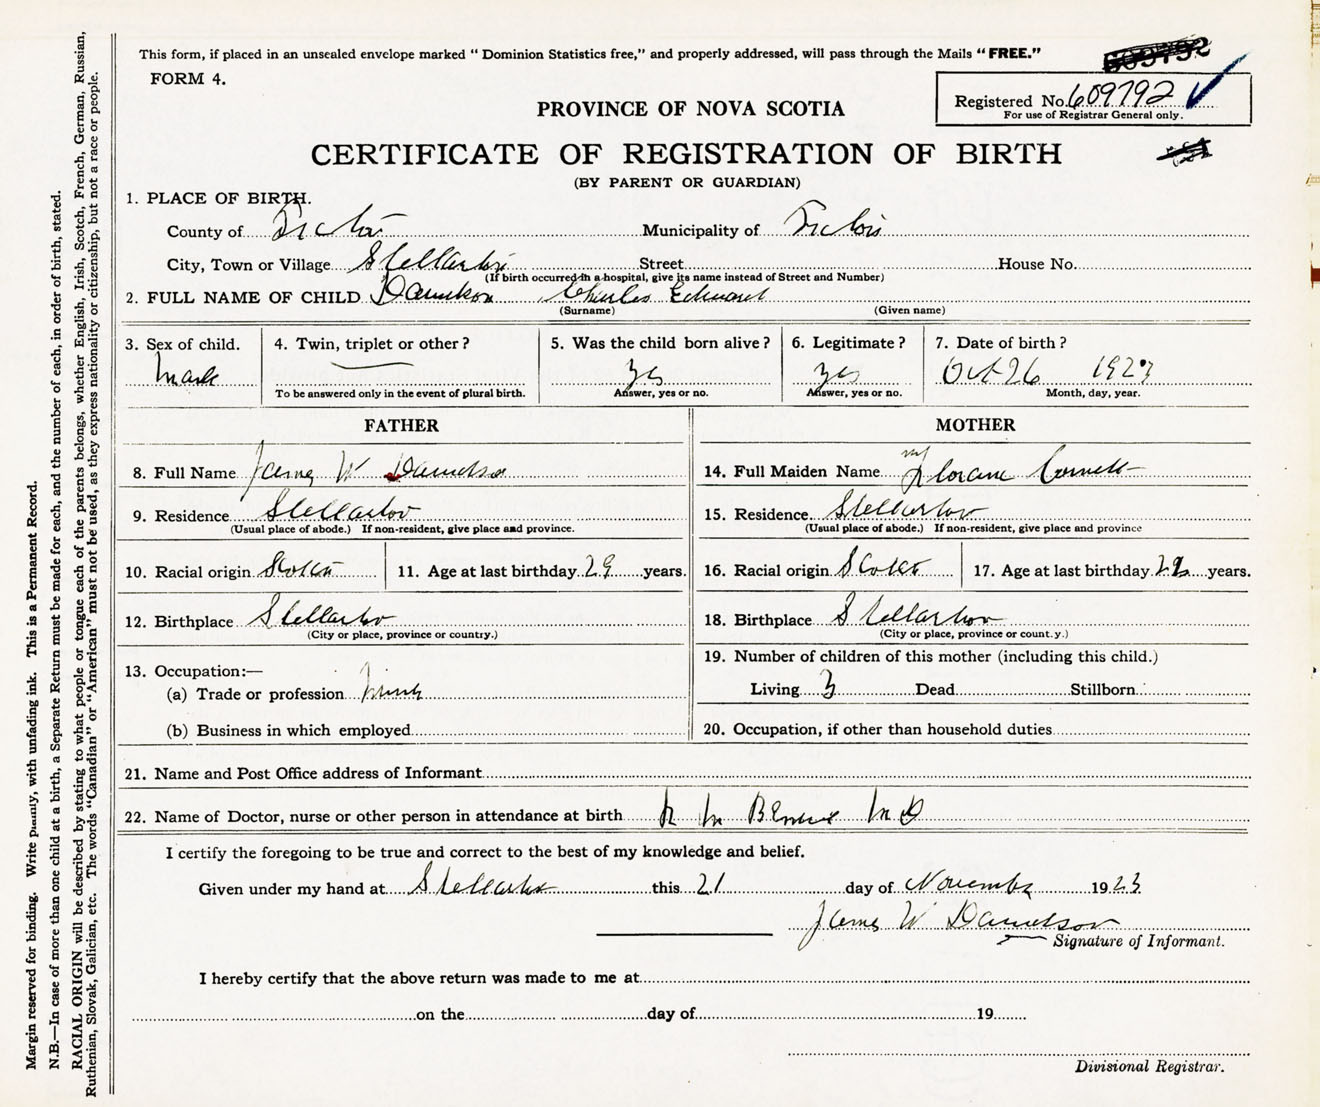 This form, if placed in an unsealed envelope marked “Dominion Statistics free,” and properly addressed, will pass through the Mails “FREE.”
FORM 4.
Registered No. 609792
For use of Registrar General only.
PROVINCE OF NOVA SCOTIA
CERTIFICATE OF REGISTRATION OF BIRTH
(BY PARENT OR GUARDIAN)
1. PLACE OF BIRTH.
County of Pictou Municipality of Pictou
City, Town or Village Stellarton Street House No.
(If birth occurred in a hospital, give its name instead of Street and Number)
2. FULL NAME OF CHILD Danielson Charles Edward
(Surname) (Given name)
3. Sex of child. 4. Twin, triplet or other? 5. Was the child born alive? 6. Legitimate? 7. Date of birth?
Male yes yes Oct 26 1923
To be answered only in the event of plural birth. Answer, yes or no. Answer, yes or no. Month, day, year.
FATHER MOTHER
8. Full Name James W Danielson 14. Full Maiden Name Florance
9. Residence Stellarton 15. Residence Stellarton
(Usual place of abode.) If non-resident, give place and province. (Usual place of abode.) If non-resident, give place and province
10. Racial origin Scotch 11. Age at last birthday 29 years. 16. Racial origin Scotch 17. Age at last birthday years.
12. Birthplace Stellarton 18. Birthplace Stellarton
(City or place, province or country.) (City or place, province or count.y.)
13. Occupation:— 19. Number of children of this mother (including this child.)
(a) Trade or profession Living 3 Dead Stillborn
(b) Business in which employed 20. Occupation, if other than household duties
21. Name and Post Office address of Informant
22. Name of Doctor, nurse or other person in attendance at birth M D
I certify the foregoing to be true and correct to the best of my knowledge and belief.
Given under my hand at Stellarton this 21 day of November 1923
James W Danielson
Signature of Informant.
I hereby certify that the above return was made to me at
on the day of 19
Divisional Registrar.
Margin reserved for binding. Write plainly, with unfading ink. This is a Permanent Record.
N.B.—In case of more than one child at a birth, a Separate Return must be made for each, and the number of each, in order of birth, stated.
RACIAL ORIGIN will be described by stating to what people or tongue each of the parents belongs, whether English, Irish, Scotch, French, German, Russian,
Ruthenian, Slovak, Galician, etc. The words “Canadian” or “American” must not be used, as they express nationality or citizenship, but not a race or people.